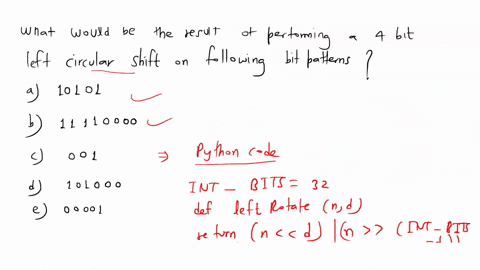 What would be the result of performing a 4 bit
left circular shift on following bit patterns ?
a) 10101
b) 11110000
c) 001 ⇒ Python code
d) 101000 INT_BITS = 32
e) 00001 def leftRotate (n,d)
return (n << d) | (n >> (INT_BITS